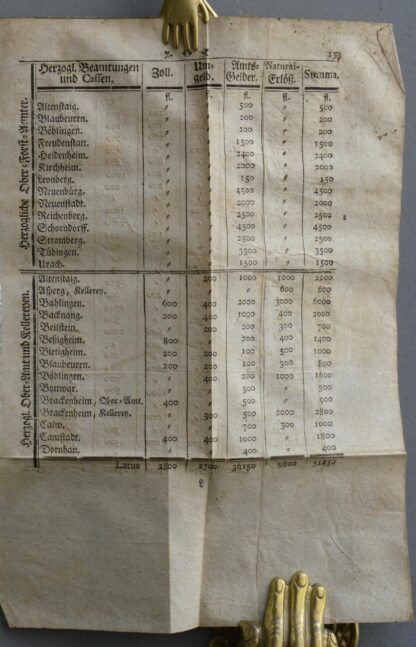 153
Herzogl. Beamtungen und Cassen. Zoll. Um-geld. Amts-Gelder. Natural-Erlöß. Summa.
fl. fl. fl. fl.
Herzogliche Ober-Forst-Aemter.
Altenstaig. 〃 〃 500 〃 500
Blaubeuren. 〃 〃 200 〃 200
Böblingen. 〃 〃 200 〃 200
Freudenstatt. 〃 〃 1500 〃 1500
Heidenheim. 〃 〃 2400 〃 2400
Kirchheim. 〃 〃 2000 〃 2000
Leonberg. 〃 〃 150 〃 150
Neuenbürg. 〃 〃 4500 〃 4500
Neuenstadt. 〃 〃 2000 〃 2000
Reichenberg. 〃 〃 2500 〃 2500
Schorndorff. 〃 〃 4500 〃 4500
Stromberg. 〃 〃 2500 〃 2500
Tübingen. 〃 〃 3500 〃 3500
Urach. 〃 〃 1500 〃 1500
Herzogl. Ober-Amt und Kellereyen.
Altenstaig. 〃 200 1000 1000 2200
Asperg, Kellerey. 〃 〃 〃 600 600
Bahlingen. 600 400 2000 3000 6000
Backnang. 〃 200 1000 400 2000
Beilstein. 〃 200 200 300 700
Beßigheim. 800 〃 200 400 1400
Bietigheim. 200 200 100 500 1000
Blaubeuren. 200 200 100 300 800
Böblingen. 〃 400 200 1000 1600
Bottwar. 〃 〃 300 〃 300
Brackenheim, Ober-Amt. 400 〃 500 〃 900
Brackenheim, Kellerey. 〃 300 500 2000 2800
Calw. 〃 〃 700 300 1000
Cannstadt. 400 400 1000 〃 1800
Dornhan. 〃 〃 400 〃 400
Latus 2800 2700 36150 9800 51450